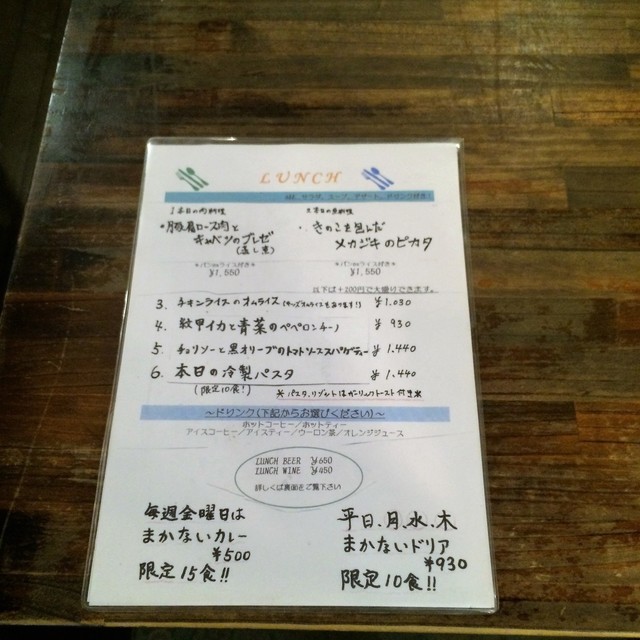 LUNCH
サラダ、スープ、デザート、ドリンク付き!
1本日の肉料理
・豚肩ロース肉と
キャベツのブレゼ
(蒸し煮)
*パンorライス付き*
¥1,550
2本日の魚料理
・きのこを包んだ
メカジキのピカタ
*パンorライス付き*
¥1,550
以下は+200円で大盛りできます。
3. チキンライスのオムライス(キッズオムライスもあります!) ¥1.030
4. 紋甲イカと青菜のペペロンチーノ ¥ 930
5. チョリソーと黒オリーブのトマトソーススパゲティー ¥1.440
6. 本日の冷製パスタ ¥1.440
(限定10食!)
*パスタ、リゾットはガーリックトースト付き*
~ドリンク(下記からお選びください)~
ホットコーヒー/ホットティー
アイスコーヒー/アイスティー/ウーロン茶/オレンジジュース
LUNCH BEER ¥650
LUNCH WINE ¥450
詳しくは裏面をご覧下さい
毎週金曜日は
まかないカレー
¥500
限定15食!!
平日、月、水、木
まかないドリア
¥930
限定10食!!